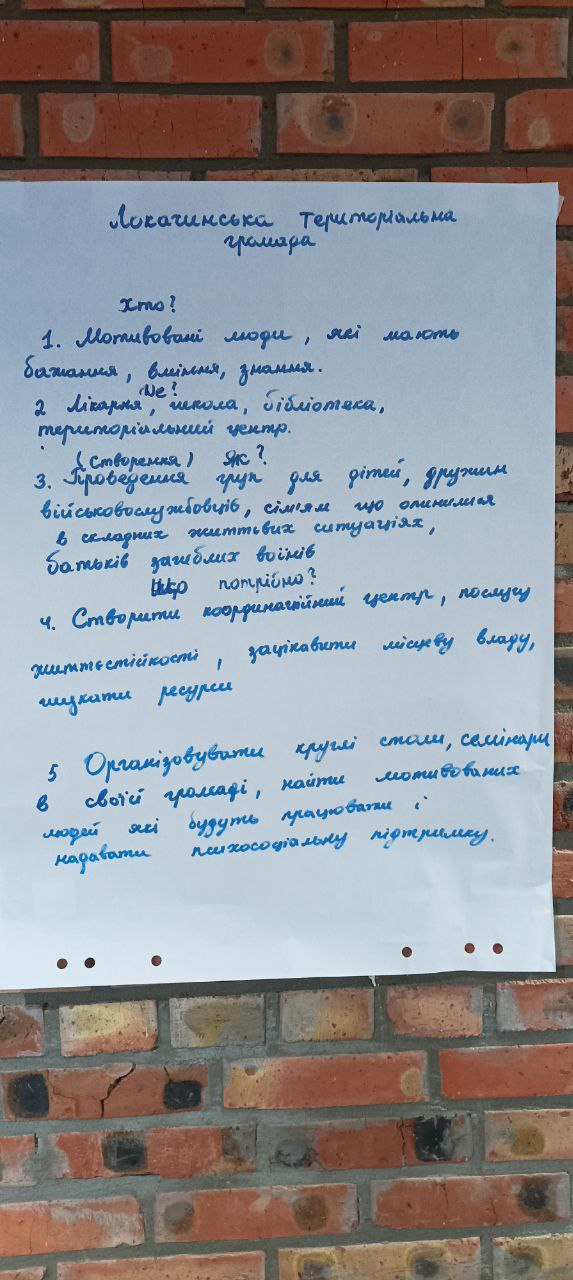 Локачинська територіальна
громада
Хто?
1. Мотивовані люди, які мають
бажання, вміння, знання.
Де?
2 Лікарня, школа, бібліотека,
територіальний центр.
(створення) Як?
3. Проведення груп для дітей, дружин
військовослужбовців, сім'ям що опинилися
в складних життєвих ситуаціях,
батьків загиблих воїнів
Що потрібно?
4. Створити координаційний центр, послугу
життєстійкості, зацікавити місцеву владу,
шукати ресурси
5 Організовувати круглі столи, семінари
в своїй громаді, найти мотивованих
людей які будуть працювати і
надавати психосоціальну підтримку.